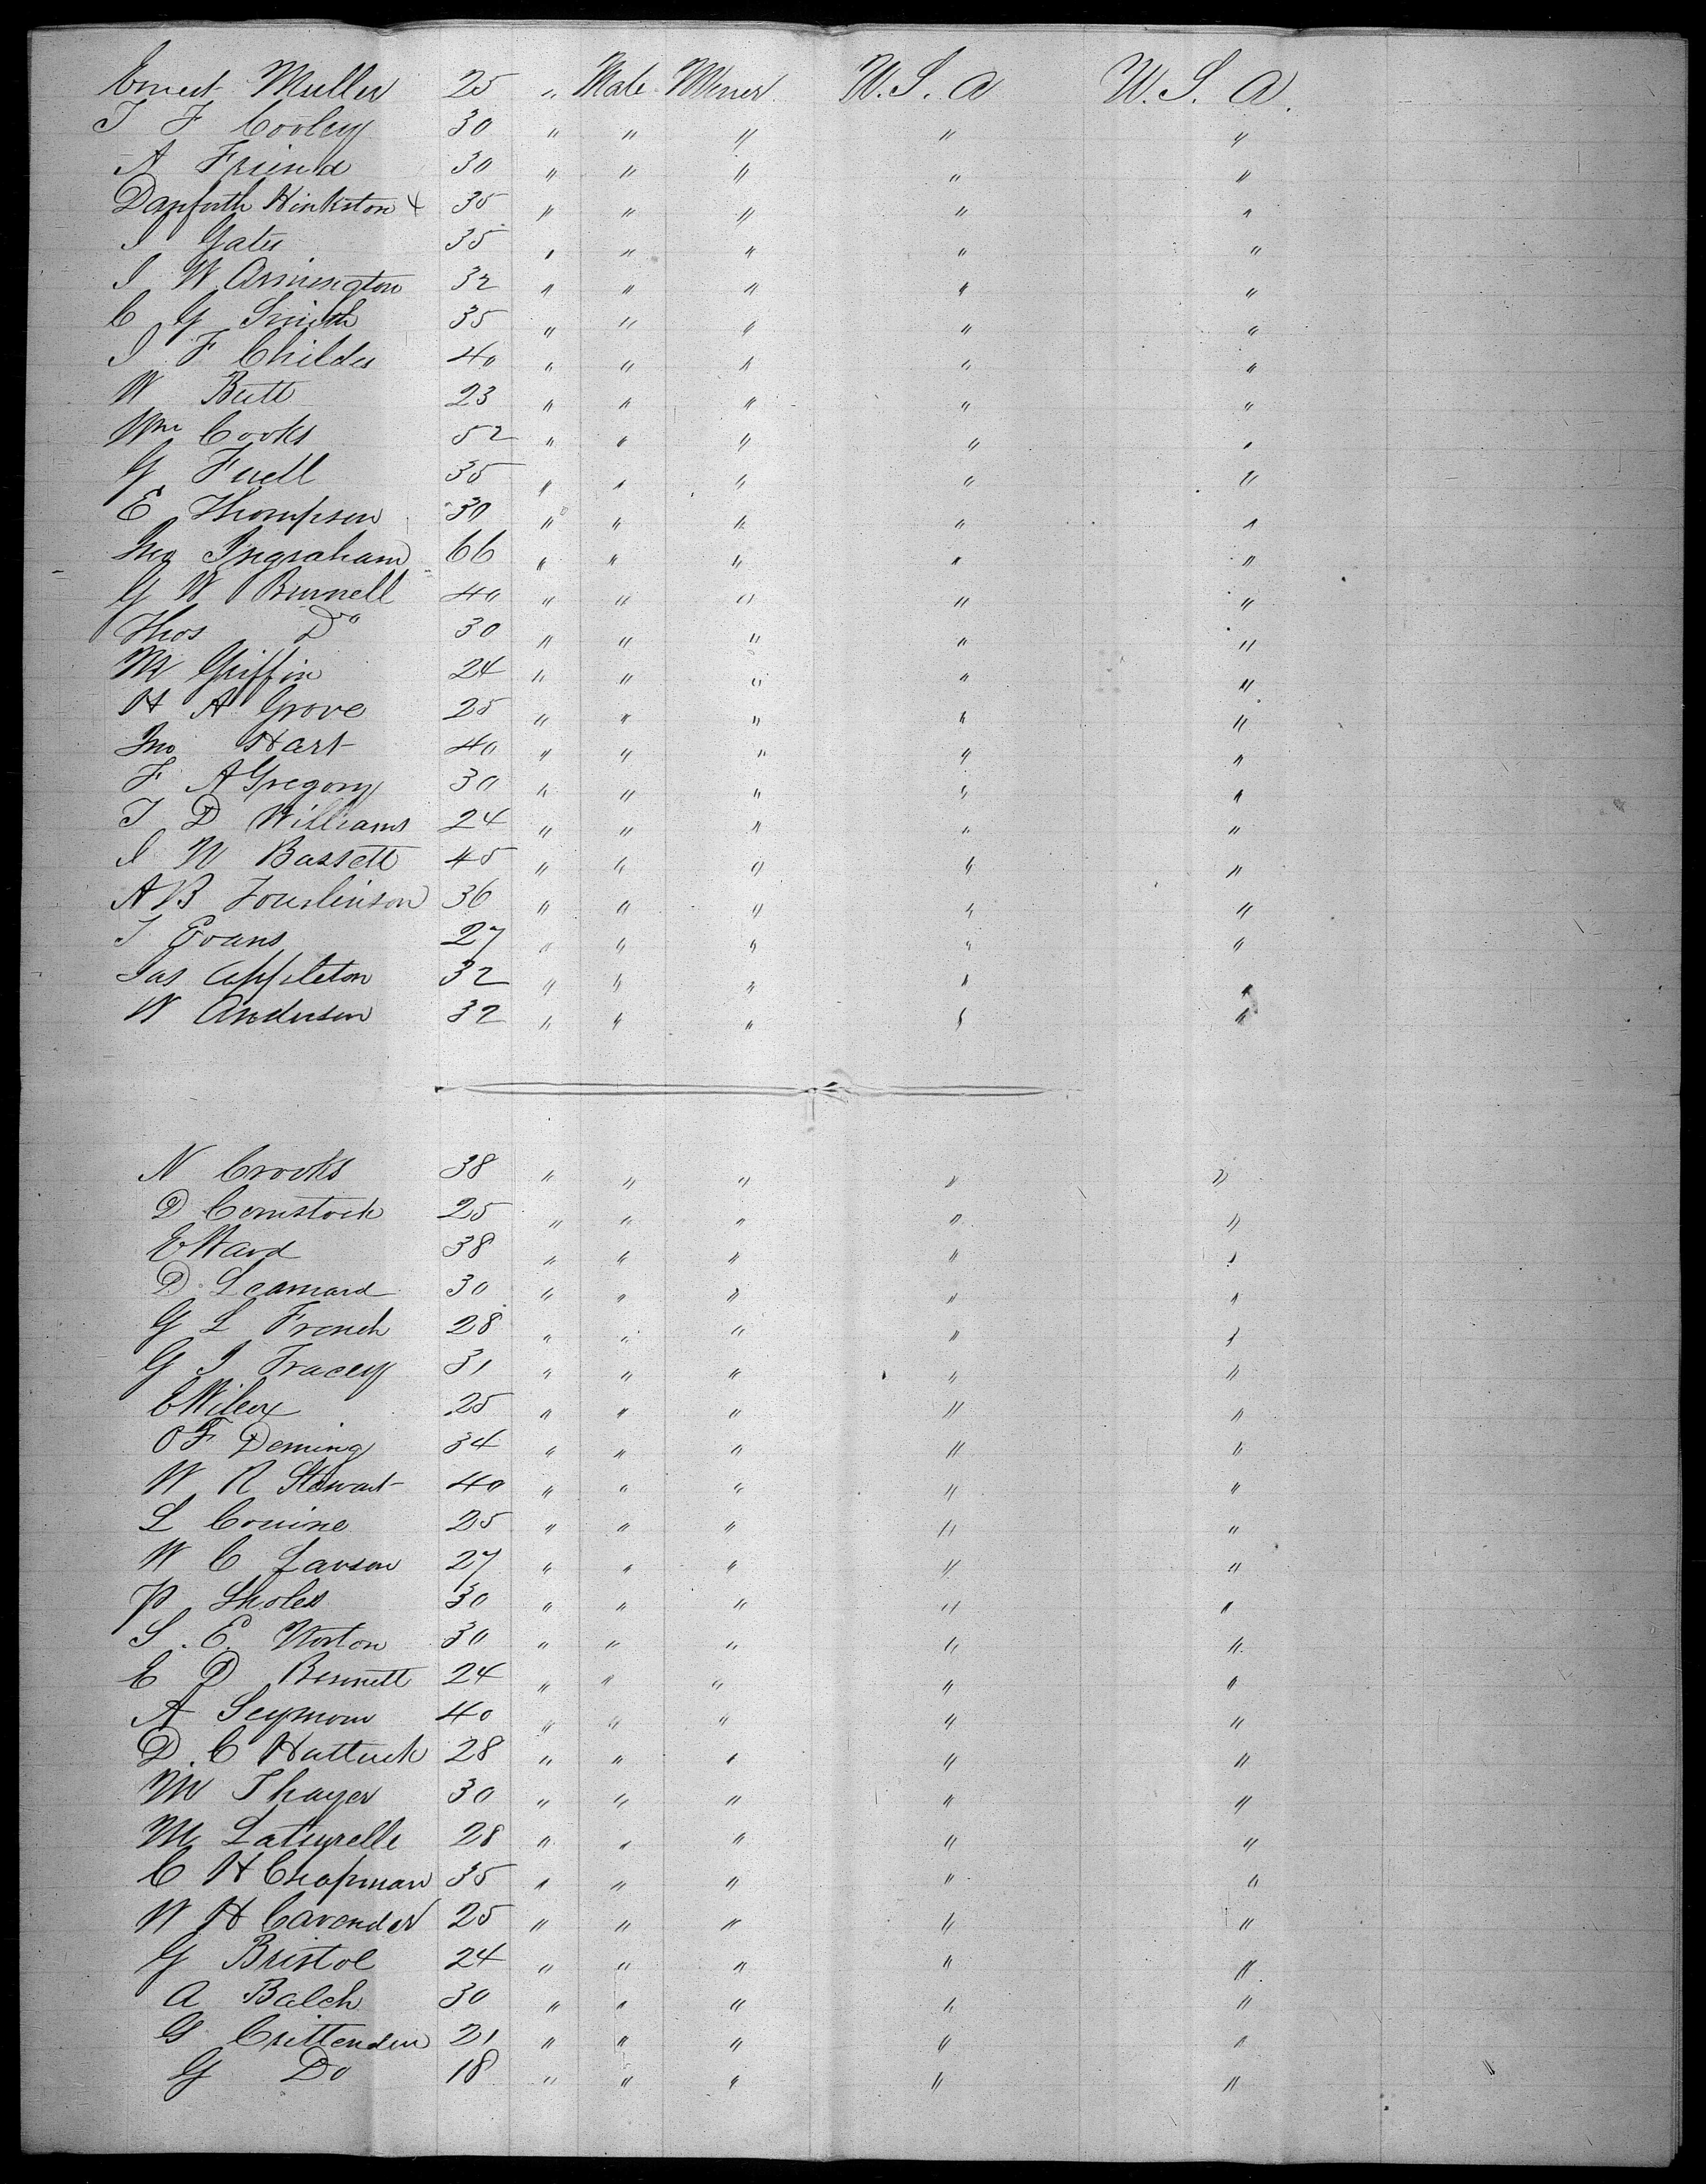 Ernest Muller 25 " Male Miner U.S.A U.S.A.
J F Cooley 30 " " " " "
A Friend 30 " " " " "
Danforth Hinkston x 35 " " " " "
J Gates 35 " " " " "
J W Armington 32 " " " " "
C G Smith 35 " " " " "
J F Childes 40 " " " " "
W Butt 23 " " " " "
Wm Cooks 52 " " " " "
G Fuell 35 " " " " "
E Thompson 30 " " " " "
Jno Ingraham 66 " " " " "
G W Bunnell 40 " " " " "
Thos Do 30 " " " " "
M Griffin 24 " " " " "
H A Grove 25 " " " " "
Jno Hart 40 " " " " "
F A Gregory 30 " " " " "
T D Williams 24 " " " " "
J W Bassett 45 " " " " "
A B Tomlinson 36 " " " " "
J Evans 27 " " " " "
Jas Appleton 32 " " " " "
W Anderson 32 " " " " "
N Crooks 38 " " " " "
D Comstock 25 " " " " "
E Ward 38 " " " " "
D Leamard 30 " " " " "
G L French 28 " " " " "
G J Tracey 31 " " " " "
C Wilcox 25 " " " " "
O F Deming 34 " " " " "
W R Stewart 40 " " " " "
L Conine 25 " " " " "
W C Lawson 27 " " " " "
P Sholes 30 " " " " "
S. E. Norton 30 " " " " "
E D Bennett 24 " " " " "
A Seymour 40 " " " " "
D. C Hattuck 28 " " " " "
M Thayer 30 " " " " "
M Laturelle 28 " " " " "
C H Chapman 35 " " " " "
W H Cavender 25 " " " " "
G Bristol 24 " " " " "
A Balch 30 " " " " "
G Crittenden 21 " " " " "
G Do 18 " " " " "